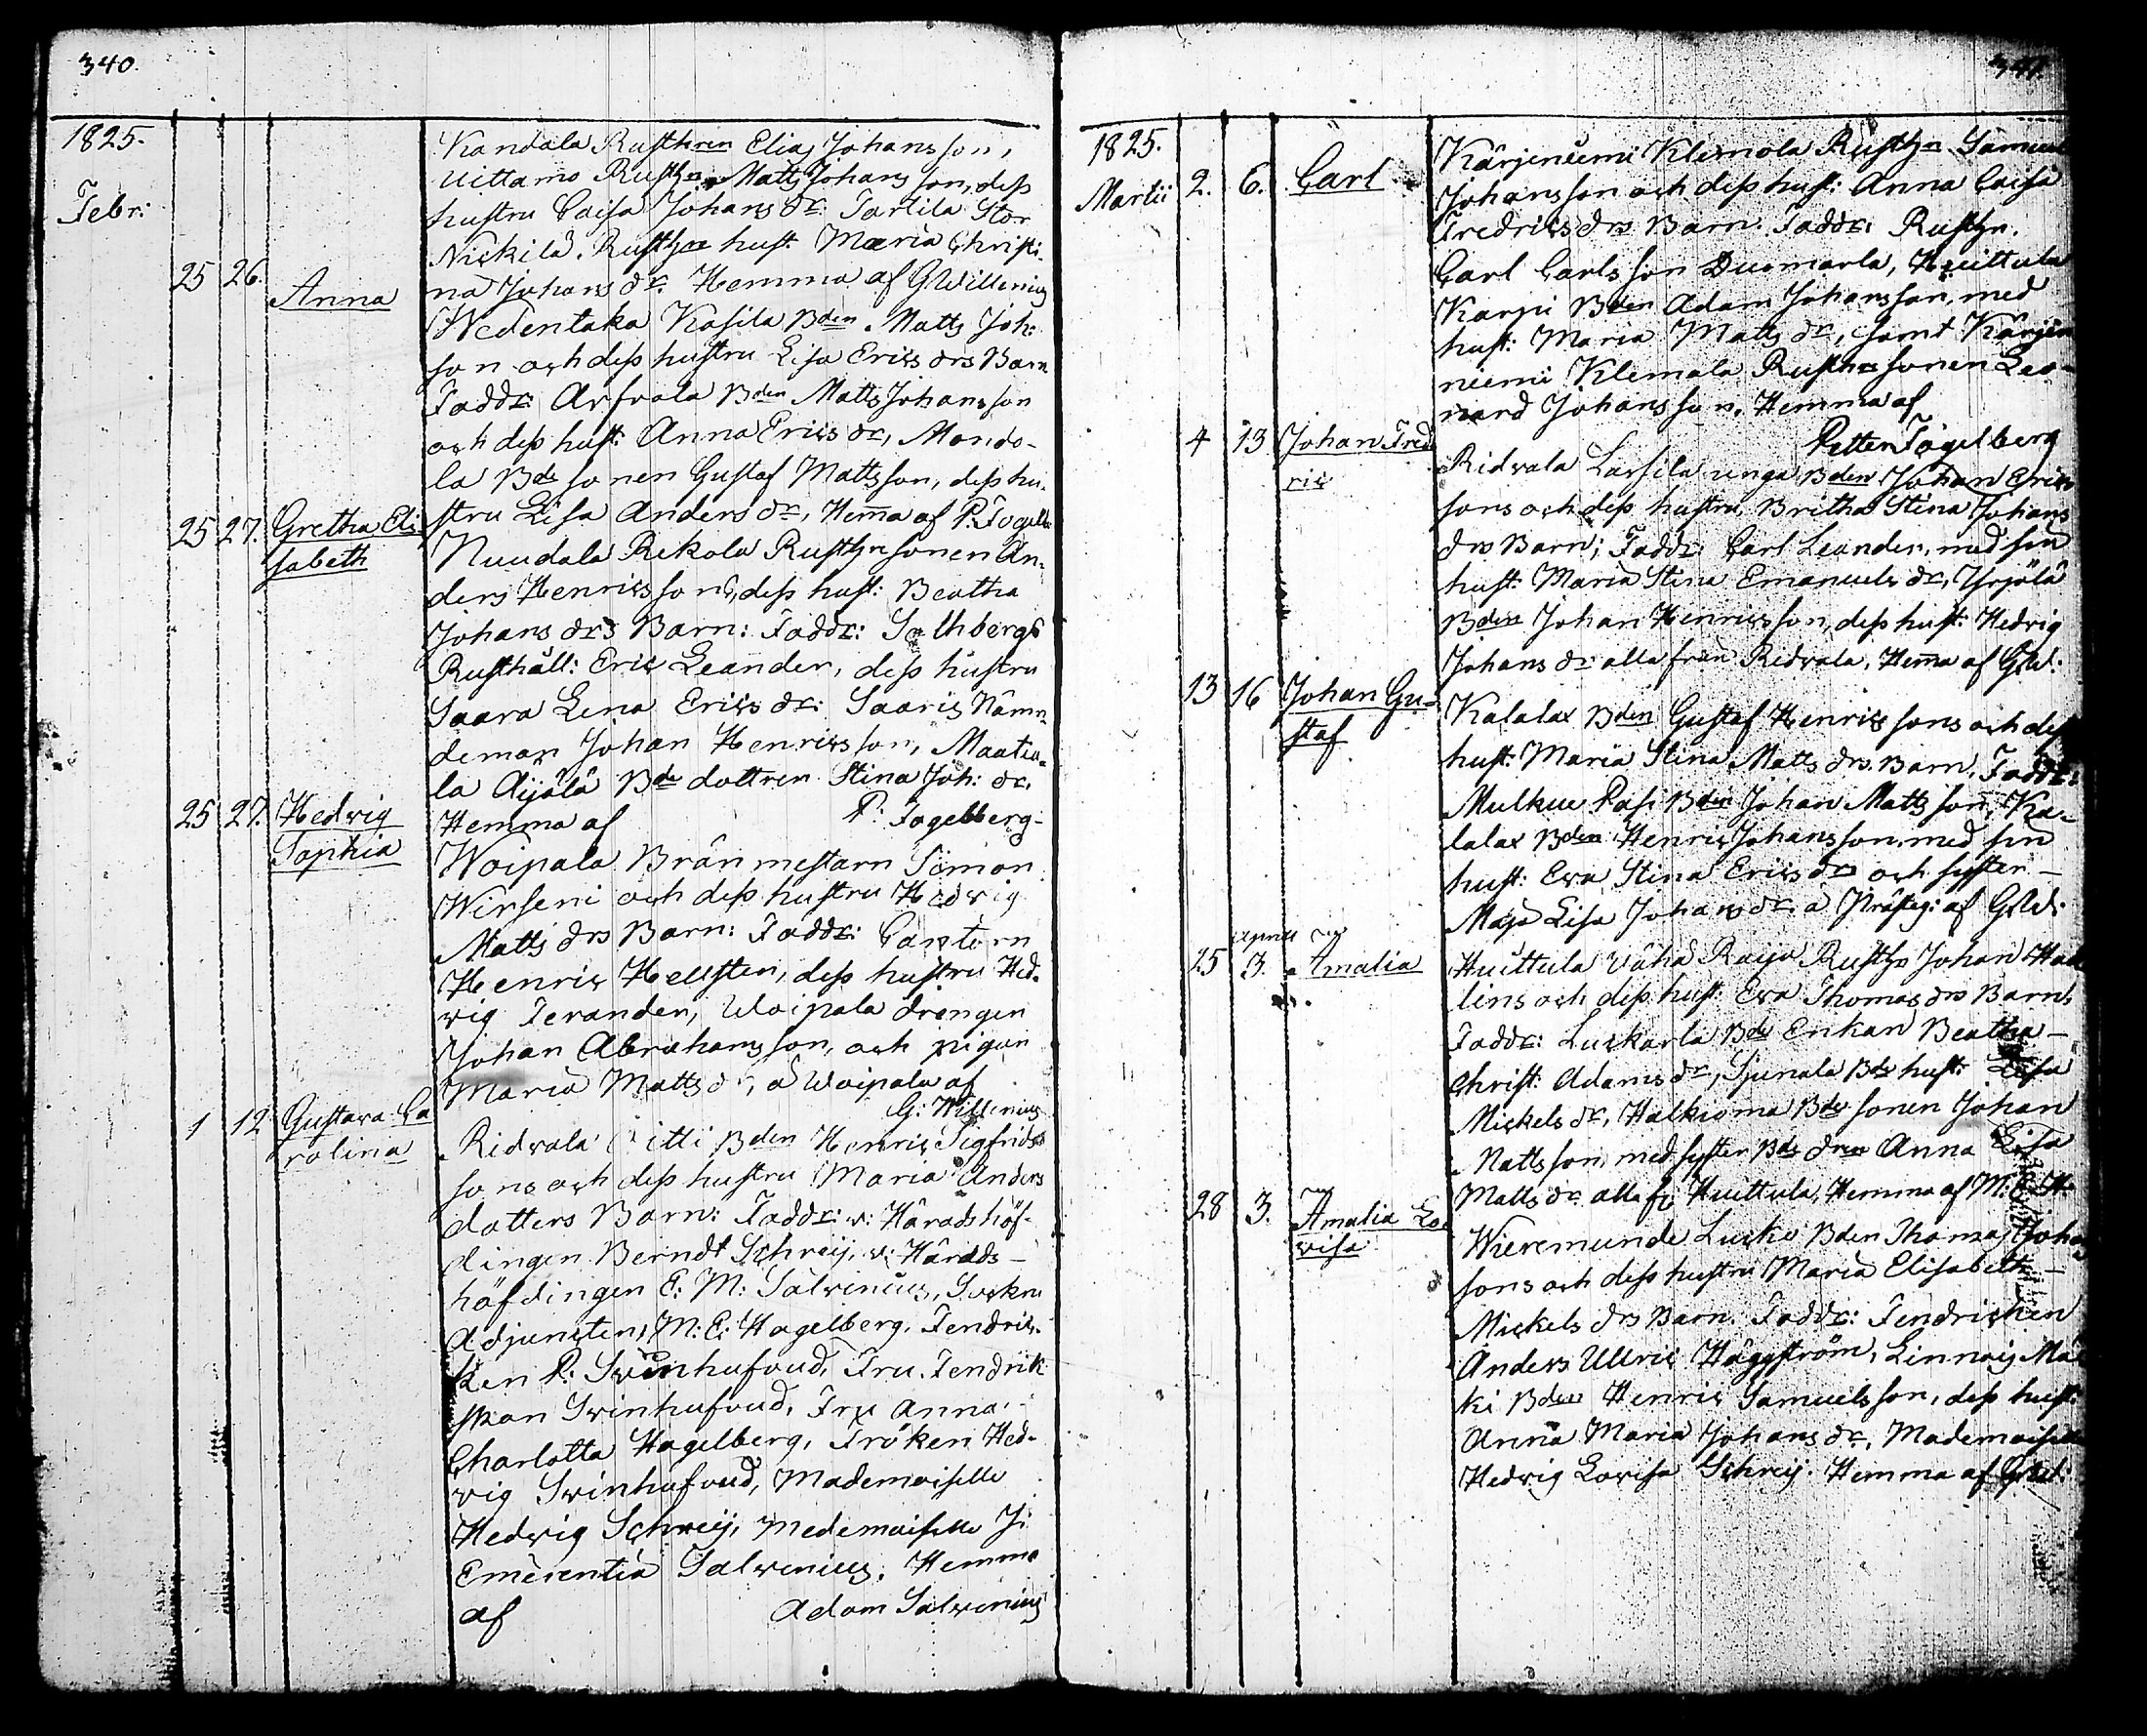 340.
1825.
Febr:
Kandala Rusthren Elias Johansson,
Uittamo Rusthn Matts Johansson, dess
hustru Caisa Johans dr: Tartila Stor
Nickilä Rusthn hust. Maria Christi-
25 26. Anna
na Johans dr. Hemma af G Willenius
Wedentaka Kasila Bden Matts Joh:
son och dess hustru Lisa Erics drs Barn
Faddr: Arfvala Bden Matts Johansson
och dess hust: Anna Erics dr, Mando-
la Bds sonen Gustaf Mattsson, dess hu-
25 27. Gretha Eli
sabeth
stru Lisa Anders dr, Hemma af P. Fogelb
Nuudala Rekola Rusthn sonen An-
ders Henricsson, dess hust: Beatha
Johans drs Barn: Faddr: Salhbergs
Rusthåll: Eric Leander, dess hustru
Saara Lena Erics dr: Saaris Nämn-
deman Johan Henricsson, Maatia-
la Äijälä Bde dottren Stina Joh: dr.
25 27. Hedvig
Sophia
Hemma af P: Fogelberg-
Woipala Brän mestarn Simon
Wirseni och dess hustru Hedvig
Matts drs Barn: Faddr: Cantorn
Henric Hellsten, dess hustru Hed-
vig Terander, Woipala drengen
Johan Abrahamsson, och pigan
Maria Matts dr, å Woipala af
G: Willenius
1 12 Gustava Ca
rolina
Ridvala Bden Henric Sigfrids
sons och dess hustru Maria Anders
dotters Barn: Faddr: v: Häradshöf-
dingen Berndt Schreij, v: Härads-
höfdingen E: M: Salvenius, Sockne
Adjuncten, M: E: Hagelberg, Fendric-
ken P: Svinhufvud, Fru Fendrik
skan Svinhufvud, Fru Anna
Charlotta Hagelberg, Fröken Hed-
vig Svinhufvud, Mademoiselle
Hedvig Schreij, Medemoiselle J:
Emerentia Salvenius, Hemma
af Adam Salvenius
341.
1825.
Martii
2. 6. Carl
Kärjenniemi Klemola Rusthn Samuel
Johansson och dess hust: Anna Caisa
Fredrics drs Barn. Faddr: Rusthn.
Carl Carlsson Duomarla, Huittula
Karpi Bden Adam Johansson, med
hust: Maria Matts dr, samt Kärjen
niemi Klemola Rusthn sonen Leo-
nard Johansson, Hemma af
Petter Fogelberg
4 13 Johan Fred
ric
Ridvala Lassila unga Bden Johan Erics
sons och dess hustru Britha Stina Johans
drs Barn; Faddr: Carl Leander, med sin
hust: Maria Stina Emanuels dr, Yrjölä
Bden Johan Henricsson, dess hust: Hedvig
Johans dr alla från Ridvala, Hemma af GW:
13 16 Johan Gu-
staf
Kalalax Bden Gustaf Henrics sons och dess
hust: Maria Stina Matts drs Barn, Faddr:
Mulkue Pass Bden Johan Mattsson, Ka-
lalax Bden Henric Johansson, med sin
hust: Eva Stina Erics dr och syster
Maja Lisa Johans dr: å Prästeg: af GW:
25 April
3. Amalia
Huittula Vähä Raijo Rusthn Johan
lins och dess hust: Eva Thomas drs Barn,
Faddr: Luckarla Bds Enkan Beatha
Christ: Adams dr, Sjunala Bds hust: Lisa
Mickels dr, Halkioma Bds sonen Johan
Mattsson, med syster Bds dren Anna Lisa
Matts dr alla fr. Huittula, Hemma af M: E: H:
28 3. Amalia Lo
visa
Wieremunde Luckö Bden Thomas Johan
sons och dess hustru Maria Elisabeth
Mickels drs Barn. Faddr: Fendricken
Anders Ullric Häggström, Linnais Mä
ki Bden Henric Samuelsson, dess hust:
Anna Maria Johans dr, Mademoiselle
Hedvig Lovisa Schreij. Hemma af GW: